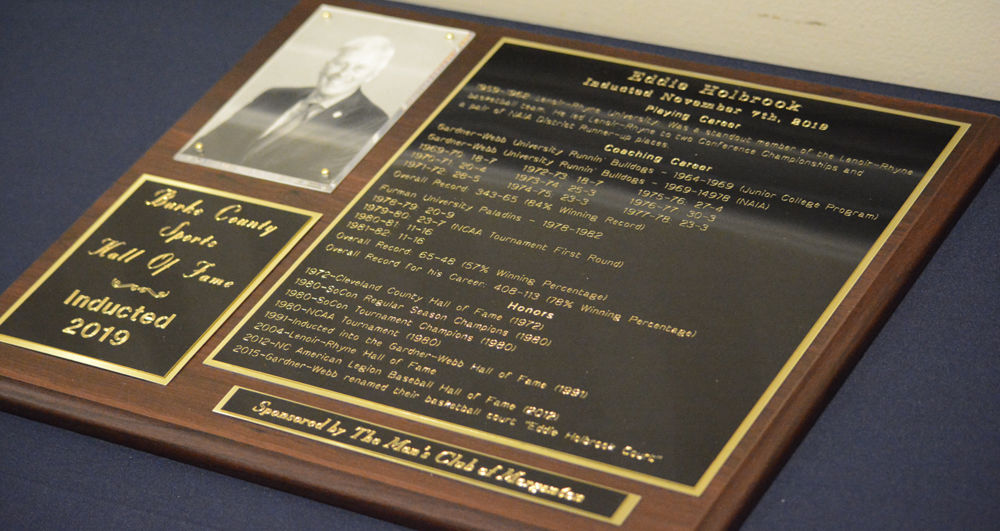 Burke County
Sports
Hall Of Fame
Inducted
2019
Eddie Holbrook
Inducted November 7th, 2019
Playing Career
1959-1962-Lenoir-Rhyne University. Was a standout member of the Lenoir-Rhyne
basketball team. He led Lenoir-Rhyne to two Conference Championships and
a pair of NAIA District Runner-up places.
Coaching Career
Gardner-Webb University Runnin' Bulldogs - 1964-1969 (Junior College Program)
Gardner-Webb University Runnin' Bulldogs - 1969-14978 (NAIA)
1969-70, 18-7 1972-73, 18-7 1975-76, 27-4
1970-71, 1973-74, 25-3 1976-77, 30-3
1971-72, 26-5 1974-75, 23-3 1977-78, 23-3
Overall Record: 343-65 (84% Winning Record)
Furman University Paladins - 1978-1982
1978-79, 20-9
1979-80, 23-7 (NCAA Tournament First Round)
1980-81, 11-16
1981-82, 11-16
Overall Record: 65-48 (57% Winning Percentage)
Overall Record for his Career: 408-113 (78% Winning Percentage)
Honors
1972-Cleveland County Hall of Fame (1972)
1980-SoCon Regular Season Champions (1980)
1980-SoCon Tournament Champions (1980)
1980-NCAA Tournament (1980)
1991-Inducted into the Gardner-Webb Hall of Fame (1991)
2004-Lenoir-Rhyne Hall of Fame
2012-NC American Legion Baseball Hall of Fame (2012)
2015-Gardner-Webb renamed their basketball court "Eddie Holbrook Court"
Sponsored by The Men's Club of Morganton